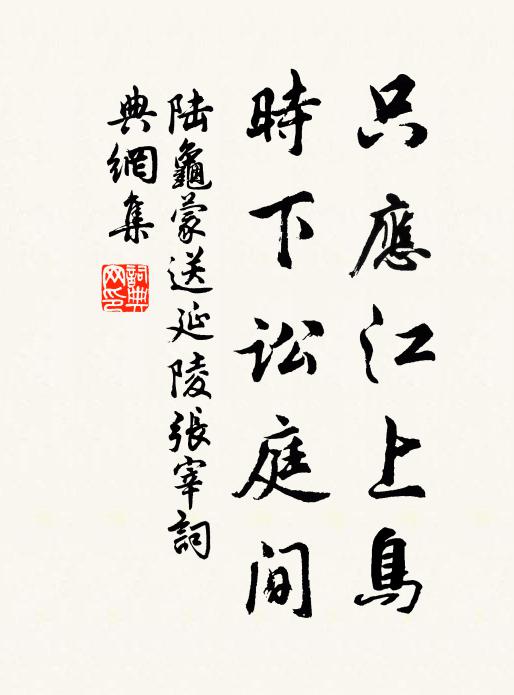 只應江上鳥
時下訟庭間
陸龜蒙送延陵張宰詞
典網集
詞典網印